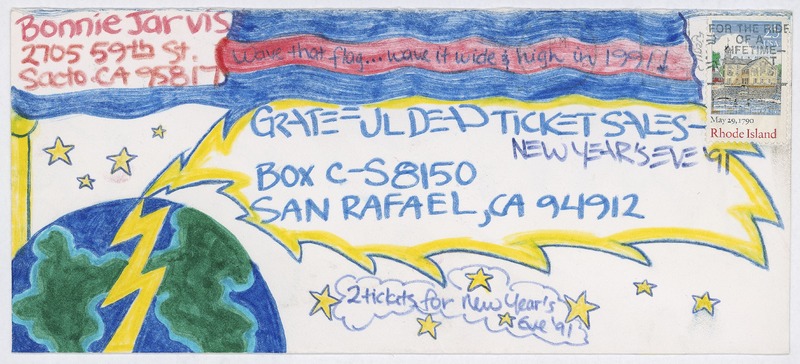 Bonnie Jarvis
2705 59th St.
Sacto. CA 95817
wave that flag... wave it wide & high in 1991!
FOR THE RIDE
OF A
LIFETIME
May 29, 1790
Rhode Island
GRATEFUL DEAD TICKET SALES-
NEW YEAR'S EVE '91
BOX C-S8150
SAN RAFAEL, CA 94912
2 tickets for New Year's
Eve '91